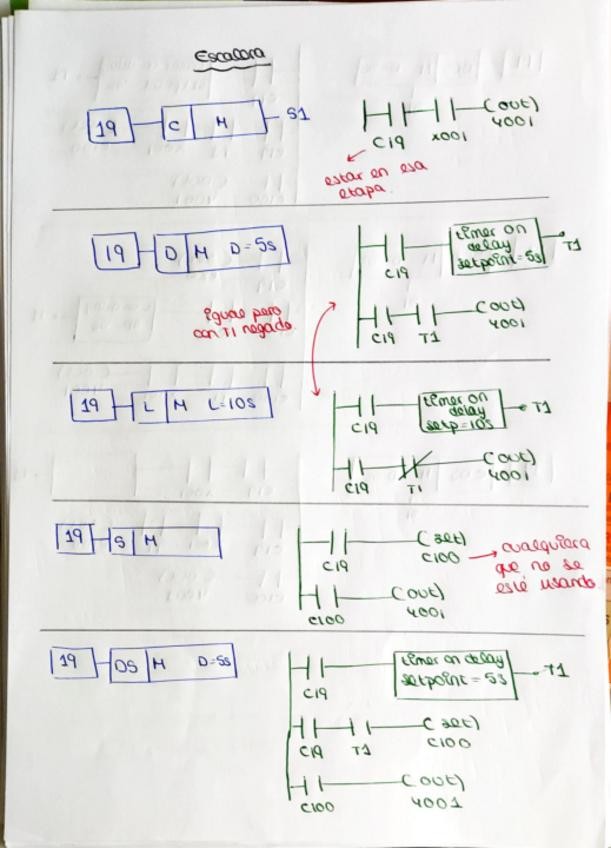 Escalera
19 C M S1
C19 X001 (out) Y001
estar en esa
etapa.
19 D M D=5s
C19 timer on delay setpoint=5s T1
C19 T1 (out) Y001
igual pero
con T1 negado.
19 L M L=10s
C19 timer on delay setp=10s T1
C19 T1 (out) Y001
19 S M
C19 (set) C100
cualquiera
que no se
esté usando
C100 (out) Y001
19 DS M D=5s
C19 timer on delay setpoint=5s T1
C19 T1 (set) C100
C100 (out) Y001